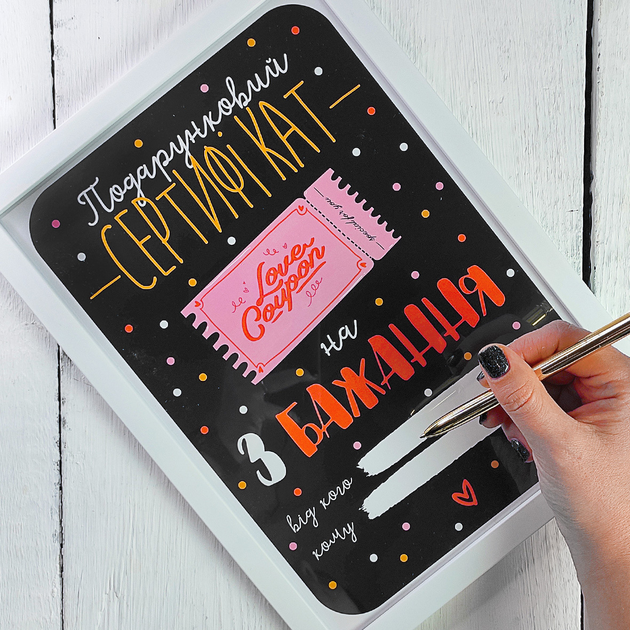 Подарунковий
СЕРТИФІКАТ
special for you
Love
Coupon
на
3 БАЖАННЯ
від кого
кому